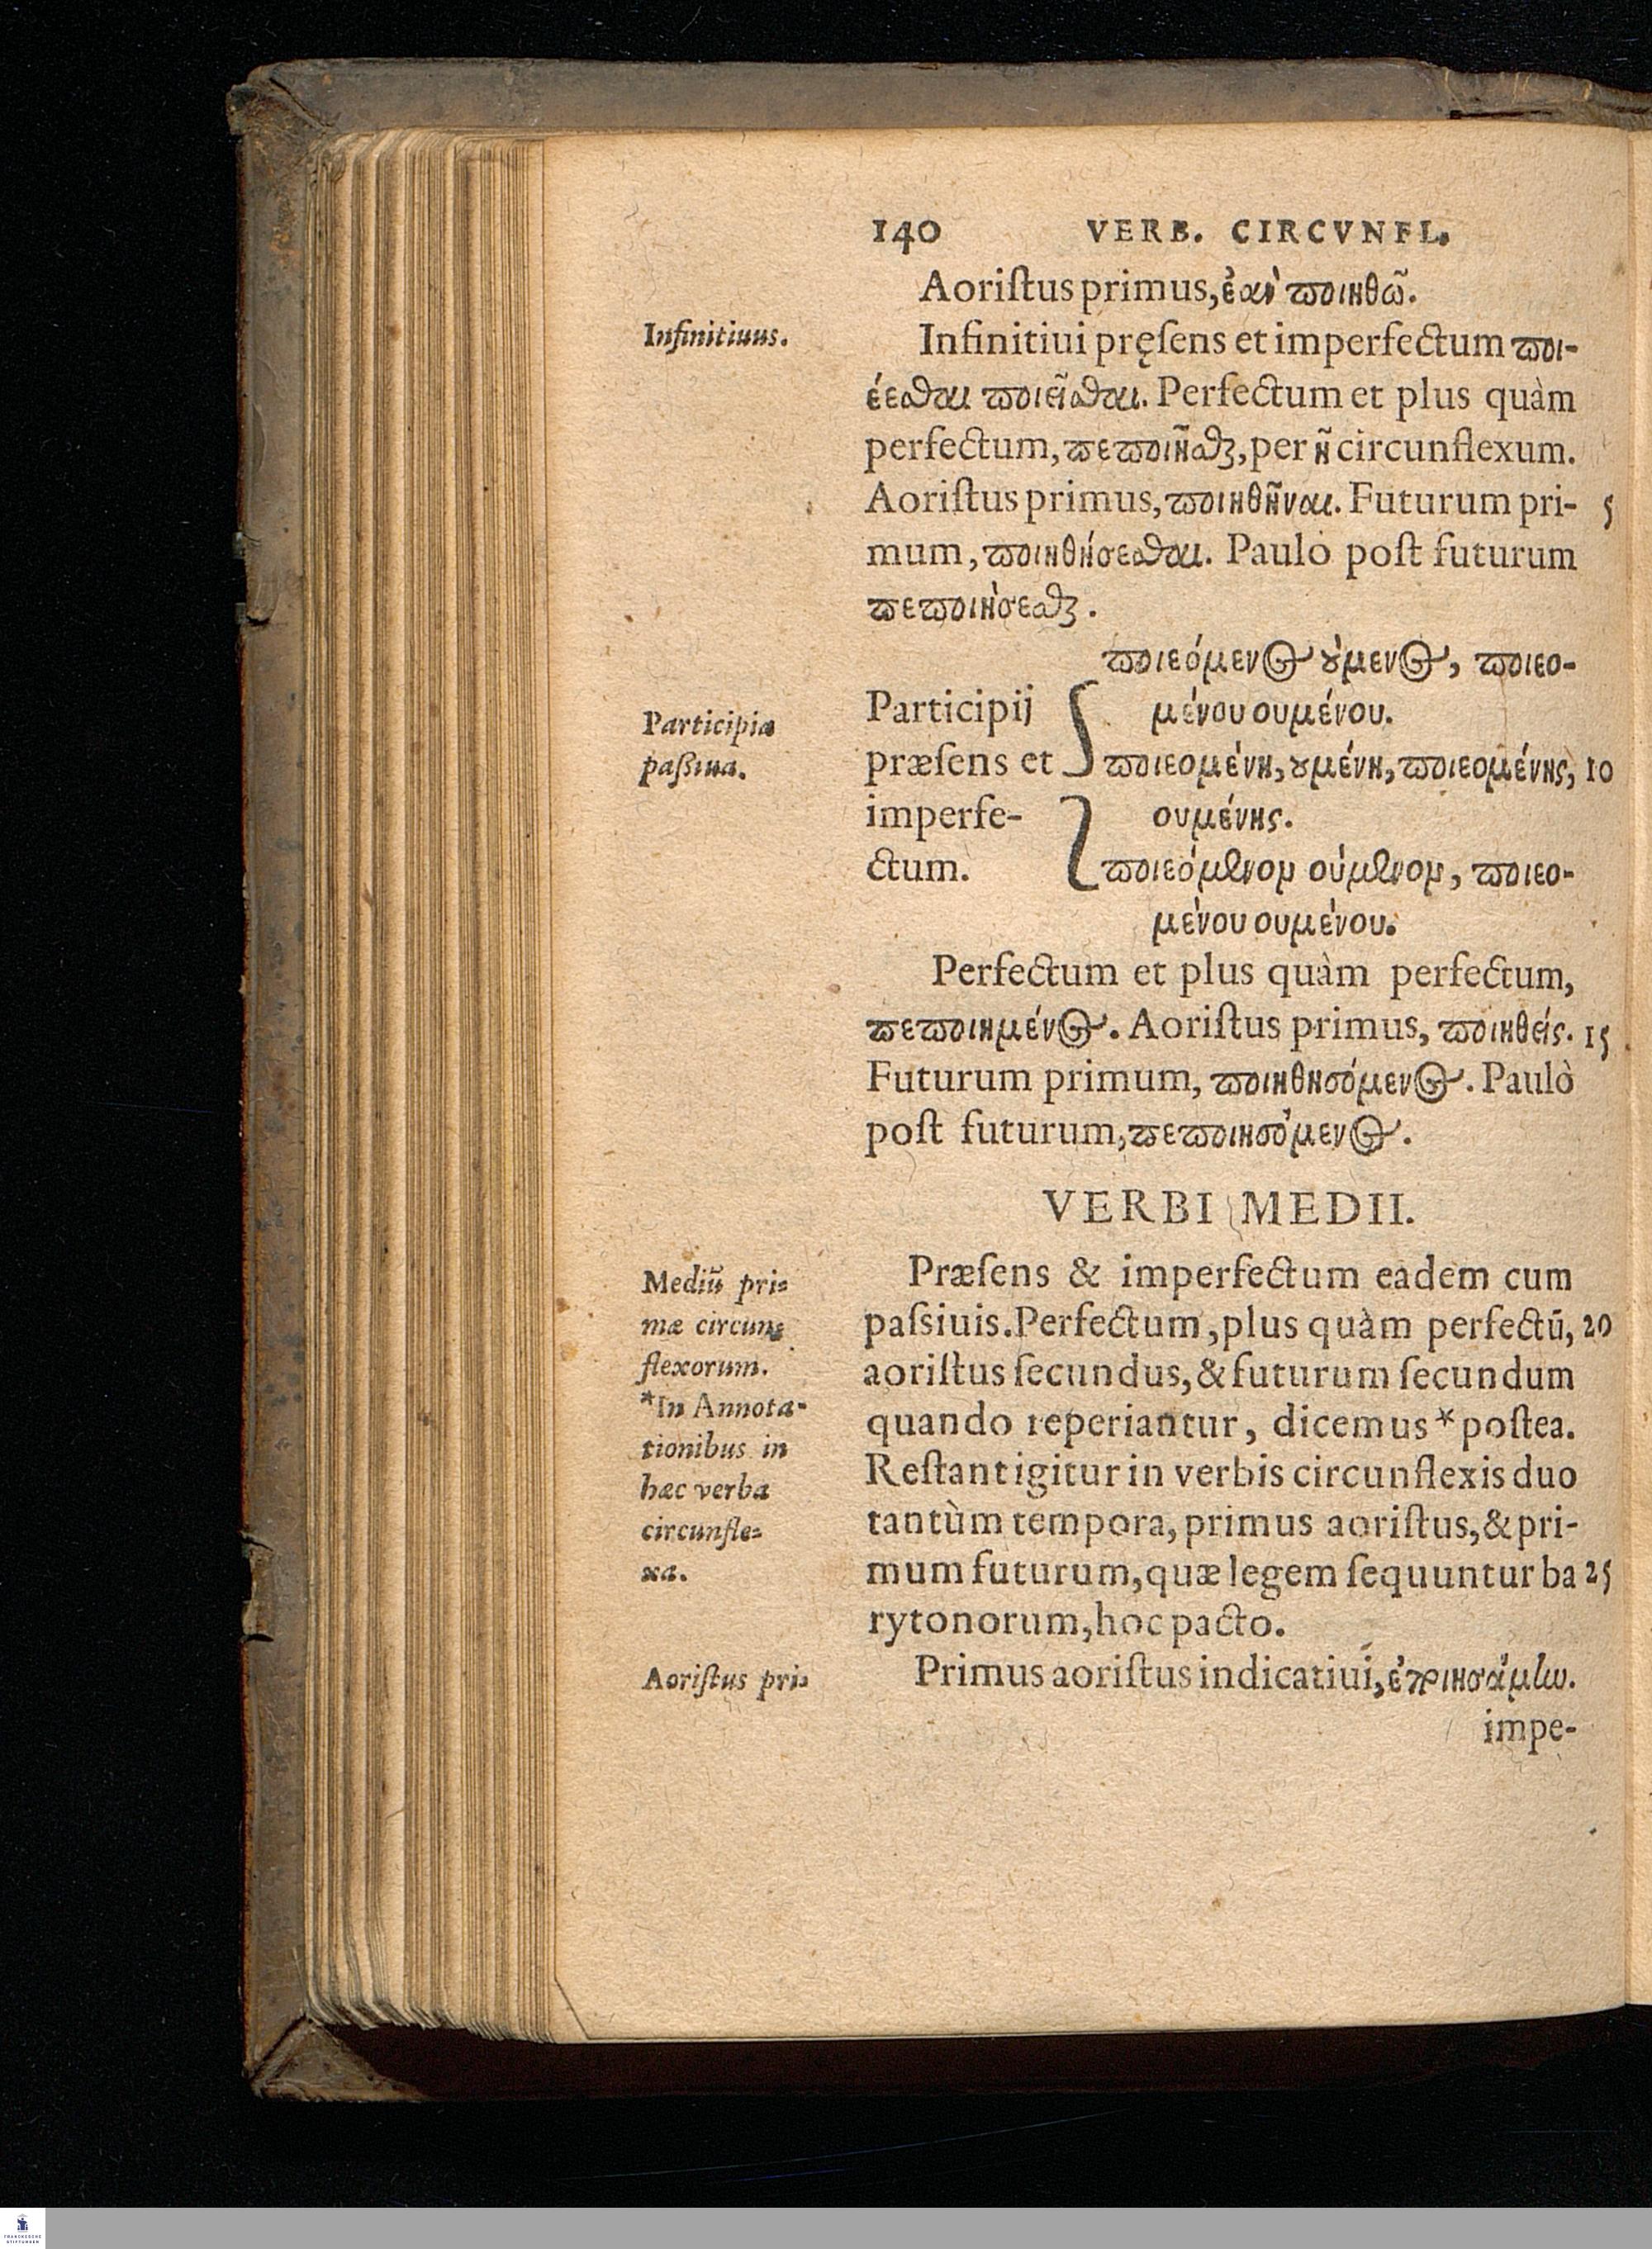 140 VERB. CIRCVNFL.
Aoriſtus primus, ἐὰν ποιηθῶ.
Infinitiuus.
Infinitiui pręſens et imperfectum ποι-
έεσθαι ποιεῖσθαι. Perfectum et plus quàm
perfectum, πεποιῆσθαι, per ῆ circunflexum.
Aoriſtus primus, ποιηθῆναι. Futurum pri- 5
mum, ποιηθήσεσθαι. Paulò poſt futurum
πεποιήσεσθαι.
ποιεόμενος ούμενος, ποιεο-
Participia
paßiua.
Participij
μένου ουμένου.
præſens et
ποιεομένη, ουμένη, ποιεομένης, 10
imperfe-
ουμένης.
ctum.
ποιεόμενον ούμενον, ποιεο-
μένου ουμένου.
Perfectum et plus quàm perfectum,
πεποιημένος. Aoriſtus primus, ποιηθείς. 15
Futurum primum, ποιηθησόμενος. Paulò
poſt futurum, πεποιησόμενος.
VERBI MEDII.
Mediũ pri-
mæ circun-
flexorum.
*In Annota-
tionibus in
hæc verba
circunfle-
xa.
Præſens & imperfectum eadem cum
paſsiuis. Perfectum, plus quàm perfectũ, 20
aoriſtus ſecundus, & futurum ſecundum
quando reperiantur, dicemus * poſtea.
Reſtant igitur in verbis circunflexis duo
tantùm tempora, primus aoriſtus, & pri-
mum futurum, quæ legem ſequuntur ba 25
rytonorum, hoc pacto.
Aoriſtus pri-
Primus aoriſtus indicatiui, ἐποιησάμην.
impe-
FRANCKESCHE
STIFTUNGEN